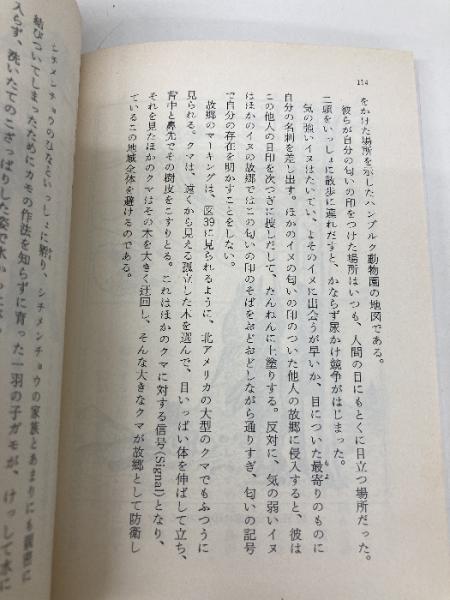 114
をかけた場所を示したハンブルク動物園の地図である。
彼らが自分の匂いの印をつけた場所はいつも、人間の目にもとくに目立つ場所だった。
二頭をいっしょに散歩に連れだすと、かならず尿かけ競争がはじまった。
気の強いイヌはたいてい、よそのイヌに出会うが早いか、目についた最寄りのものに
自分の名刺を差し出す。ほかのイヌの匂いの印のついた他人の故郷に侵入すると、彼は
この他人の目印を次つぎに捜しだして、たんねんに上塗りする。反対に、気の弱いイヌ
はほかのイヌの故郷ではこの匂いの印のそばをおどおどしながら通りすぎ、匂いの記号
で自分の存在を明かすことをしない。
故郷のマーキングは、図39に見られるように、北アメリカの大型のクマでもふつうに
見られる。クマは、遠くから見える孤立した木を選んで、目いっぱい体を伸ばして立ち、
背中と鼻先でその樹皮をこすりとる。これはほかのクマに対する信号(Signal)となり、
それを見たほかのクマはその木を大きく迂回し、そんな大きなクマが故郷として防衛し
ているこの地域全体を避けるのである。
シチメンチョウのひなといっしょに孵り、シチメンチョウの家族とあまりにも親密に
結びついてしまったためにカモの作法を知らずに育った一羽の子ガモが、けっして水に
入らず、洗いたてのこざっぱりした姿で水か